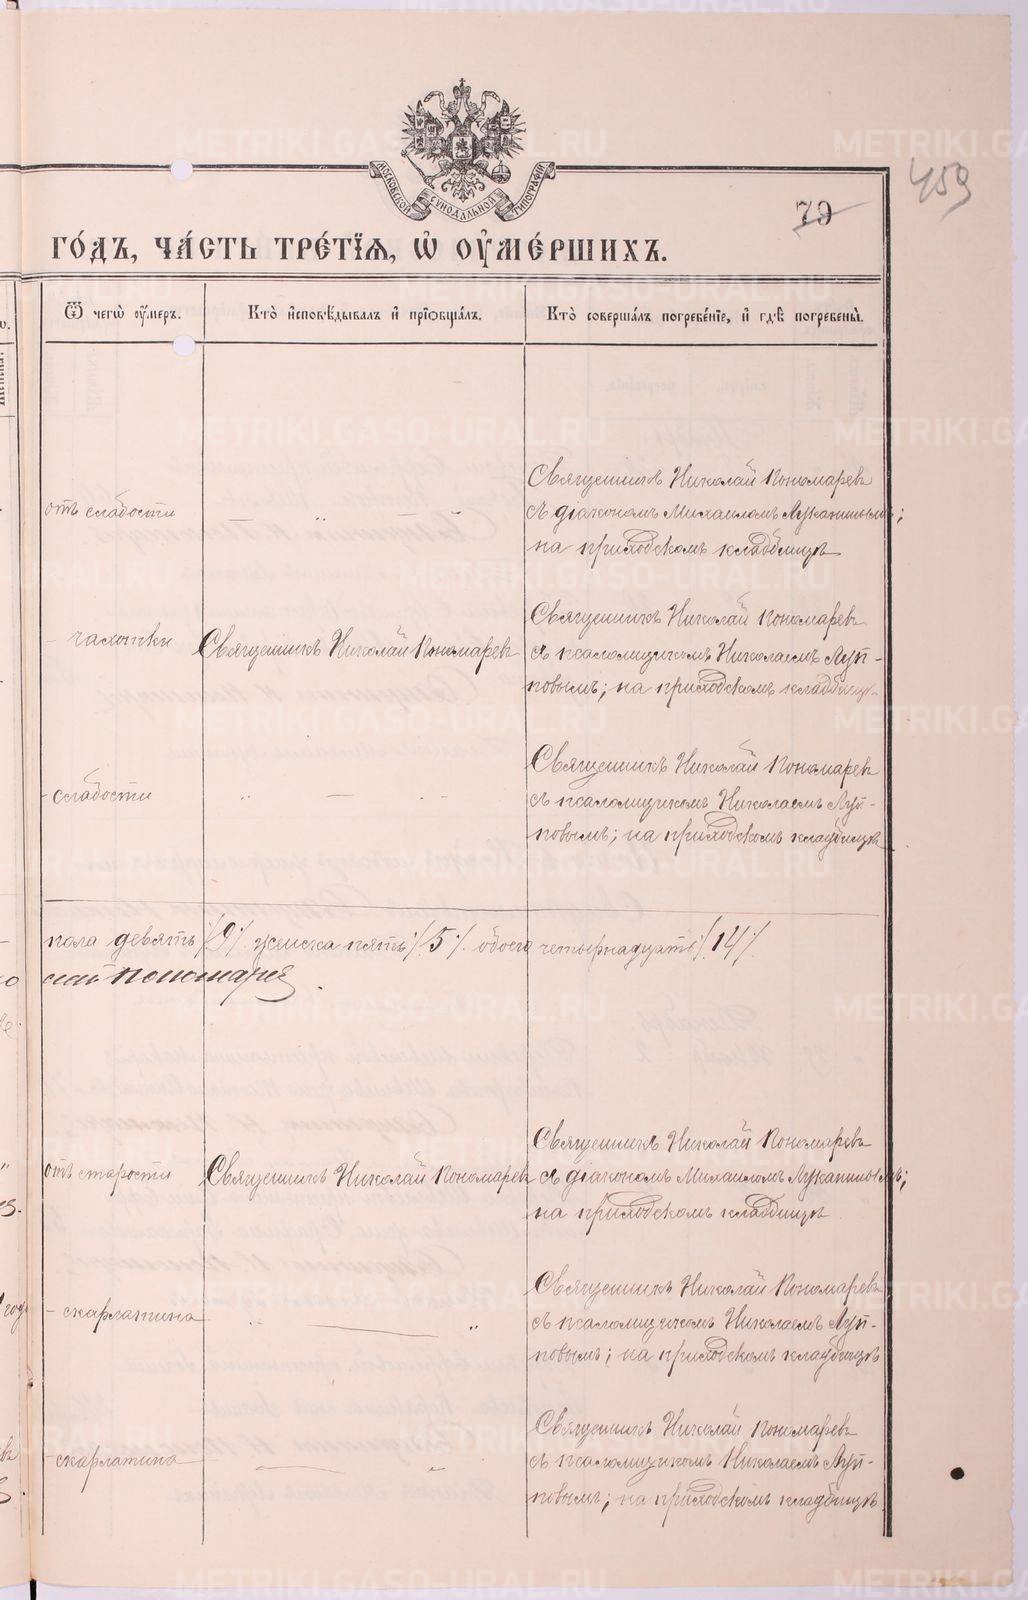 459
79
МОСКОВСКОЙ СѴНОДАЛЬНОЙ ТИПОГРАФІИ
ГО́ДЪ, ЧА́СТЬ ТРЕ́ТІЯ, Ѡ҆ ОУ҆МЕ́РШИХЪ.
Ѿ чегѡ̀ оу҆́меръ.
Кто̀ и҆сповѣ́дывалъ и҆ прїѡбща́лъ.
Кто̀ соверша́лъ погребе́нїе, и҆ гдѣ̀ погребены̀.
отъ слабости
— „ — „
Священникъ Николай Пономаревъ
съ діакономъ Михаиломъ Луканинымъ;
на приходскомъ кладбищѣ
- чахотки
Священникъ Николай Пономаревъ
Священникъ Николай Пономаревъ
съ псаломщикомъ Николаемъ Луп-
повымъ; на приходскомъ кладбищѣ.
- слабости
„ — „
Священникъ Николай Пономаревъ
съ псаломщикомъ Николаемъ Луп-
повымъ; на приходскомъ кладбищѣ
пола девять /9/. женска пять /5/. обоего четырнадцать /14/.
Пономарев.
отъ старости
Священникъ Николай Пономаревъ
Священникъ Николай Пономаревъ
съ діакономъ Михаиломъ Луканинымъ;
на приходскомъ кладбищѣ
- скарлатина
„ — „
Священникъ Николай Пономаревъ
съ псаломщикомъ Николаемъ Луп-
повымъ; на приходскомъ кладбищѣ
- скарлатина
— „
Священникъ Николай Пономаревъ
съ псаломщикомъ Николаемъ Луп-
повымъ; на приходскомъ кладбищѣ
METRIKI.GASO-URAL.RU